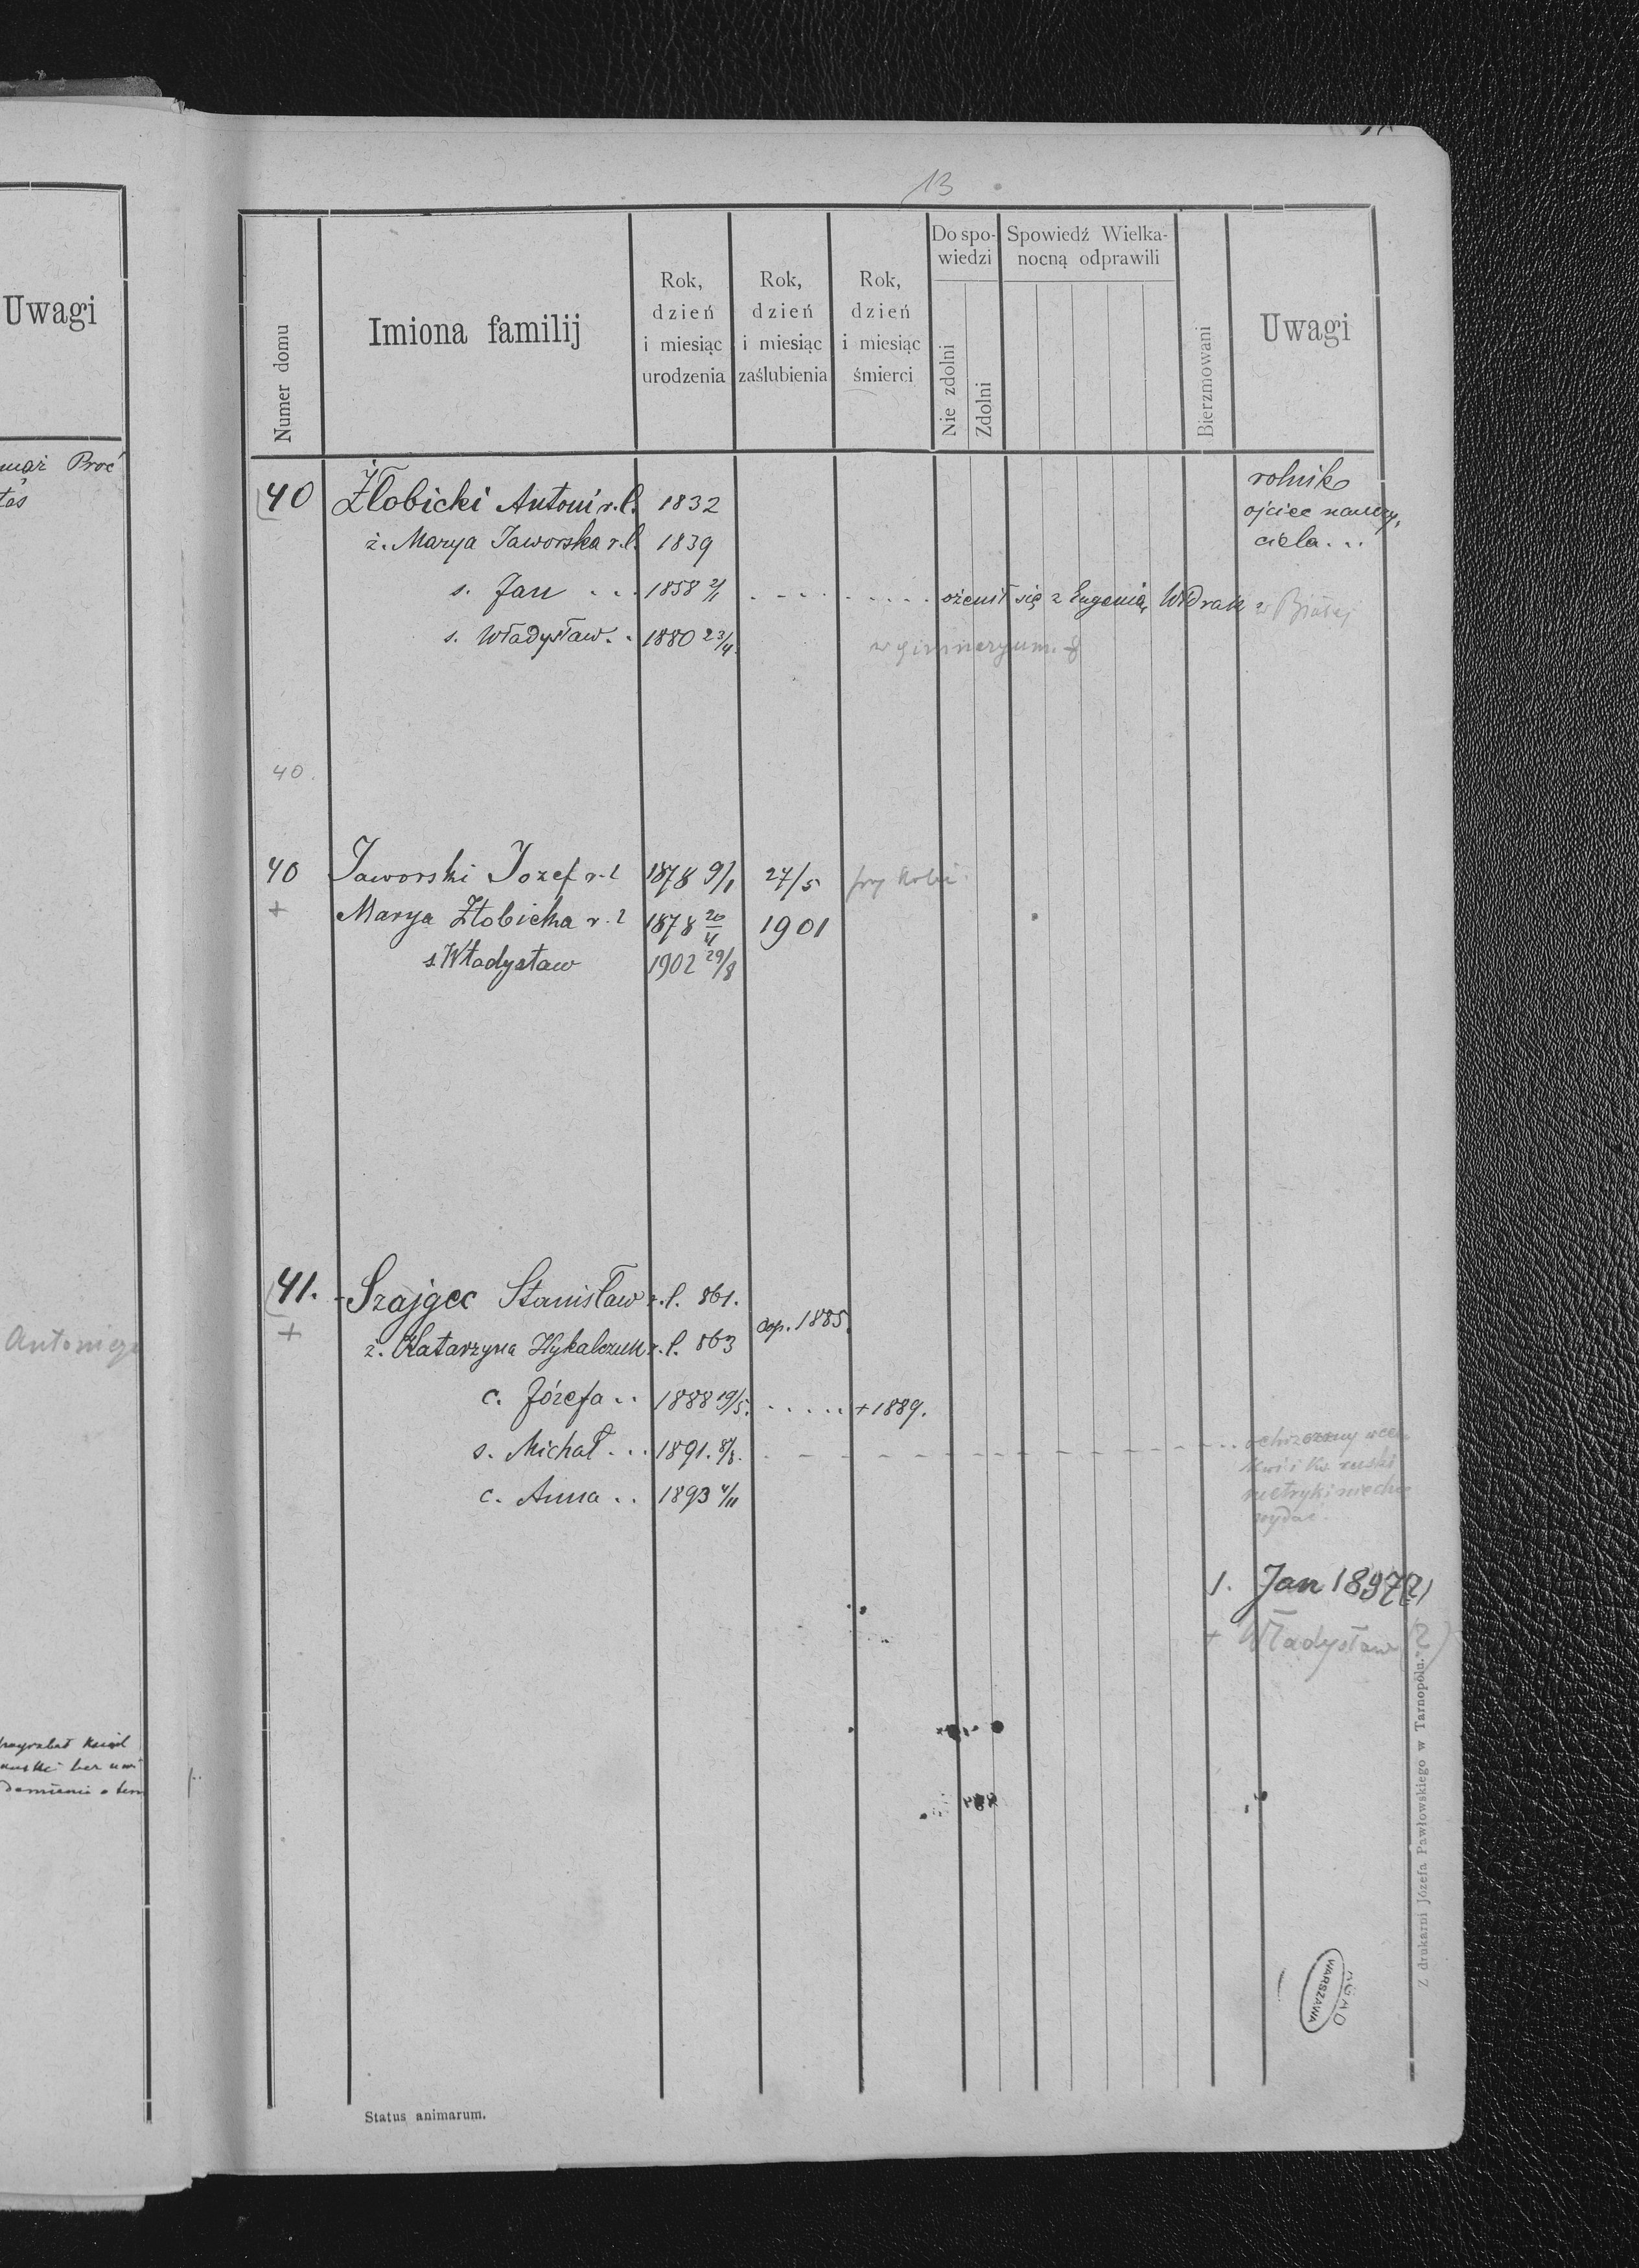 Uwagi
mąż Proć
Antoniego
13
Numer domu
Imiona familij
Rok, dzień i miesiąc urodzenia
Rok, dzień i miesiąc zaślubienia
Rok, dzień i miesiąc śmierci
Do spowiedzi
Nie zdolni
Zdolni
Spowiedź Wielkanocną odprawili
Bierzmowani
Uwagi
40 Żłobicki Antoni r.l. 1832 rolnik
ojciec nauczy,
ż. Marya Jaworska r.l. 1839 ciela...
s. Jan ... 1858 2/1 ożenił się z Eugenią Widrak z Białej
s. Władysław.. 1880 23/4 w gimnazyum.
40.
40 Jaworski Jozef r.l 1878 9/1 27/5
+ Marya Żłobicka r.l 1878 20/11 1901
s. Władysław 1902 29/8
41. Szajgec Stanisław r.l. 861.
dop. 1885.
+ ż. Katarzyna Hykalczuk r.l. 863
c. Józefa .. 1888 19/5. ..... + 1889.
s. Michał ... 1891. 8/8. ochrzczony w cer
kwi i ks. ruski
metryki niechce
wydać.
c. Anna .. 1893 4/11
1. Jan 1897(2)
+ Władysław (2)
ruski bez uwi
domienia o tem
Z drukarni Józefa Pawłowskiego w Tarnopolu.
AGAD
WARSZAWA
Status animarum.